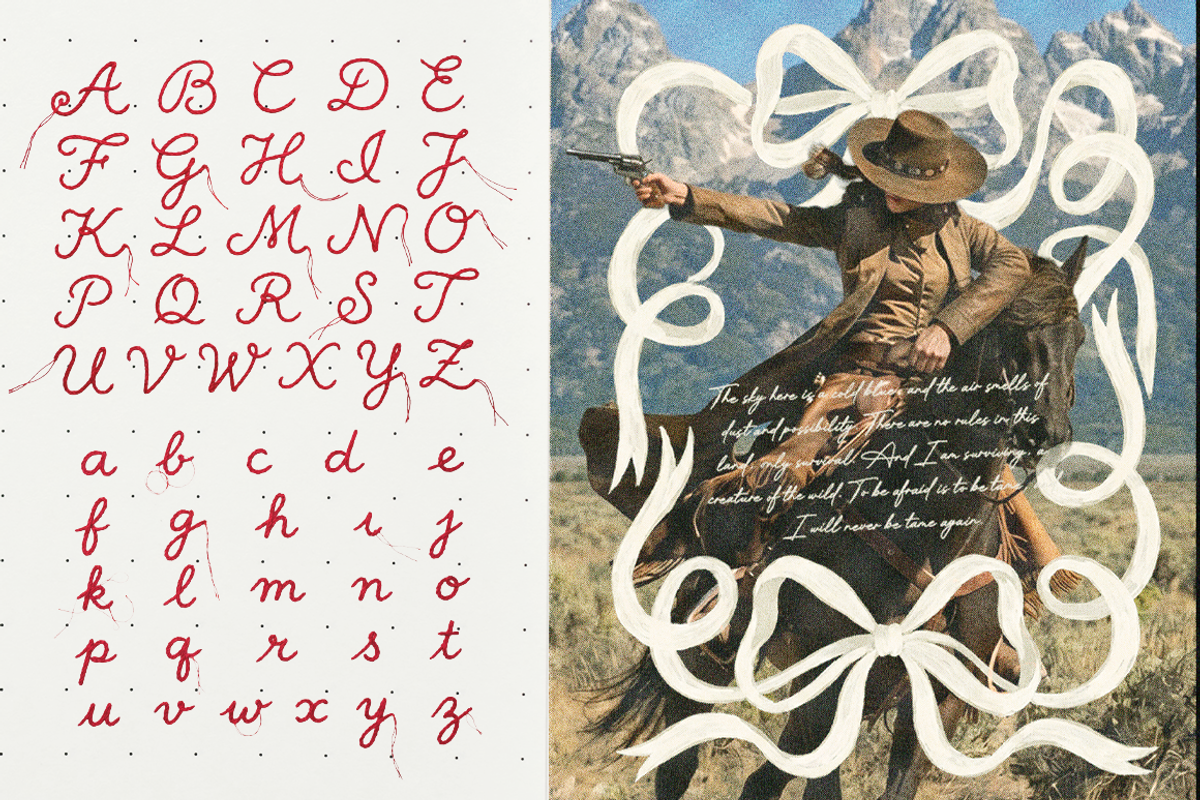 A B C D E
F G H I J
K L M N O
P Q R S T
U V W X Y Z
a b c d e
f g h i j
k l m n o
p q r s t
u v w x y z
The sky here is a cold blue, and the air smells of
dust and possibility. There are no rules in this
land, only survival. And I am surviving, a
creature of the wild. To be afraid is to be tame.
I will never be tame again.